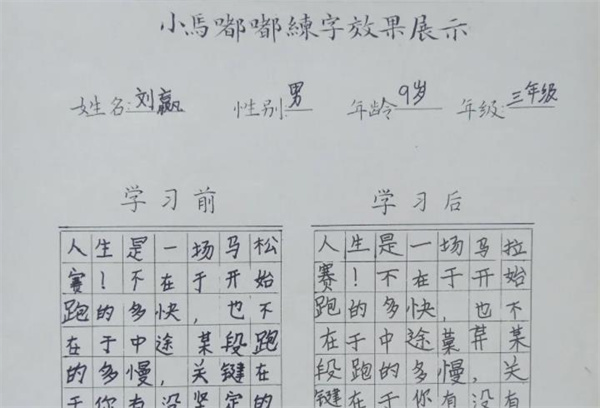 小馬嘟嘟練字效果展示
姓名:刘嬴 性别:男 年龄9岁 年级:三年级
学习前
人生是一场马松
赛！不在于开始
跑的多快，也不
在于中途某段跑
的多慢，关键在
于你有没坚定的
学习后
人生是一场马拉
赛！不在于开始
跑的多快，也不
在于中途菓芹某
段跑的多慢，关
键在于你有没有